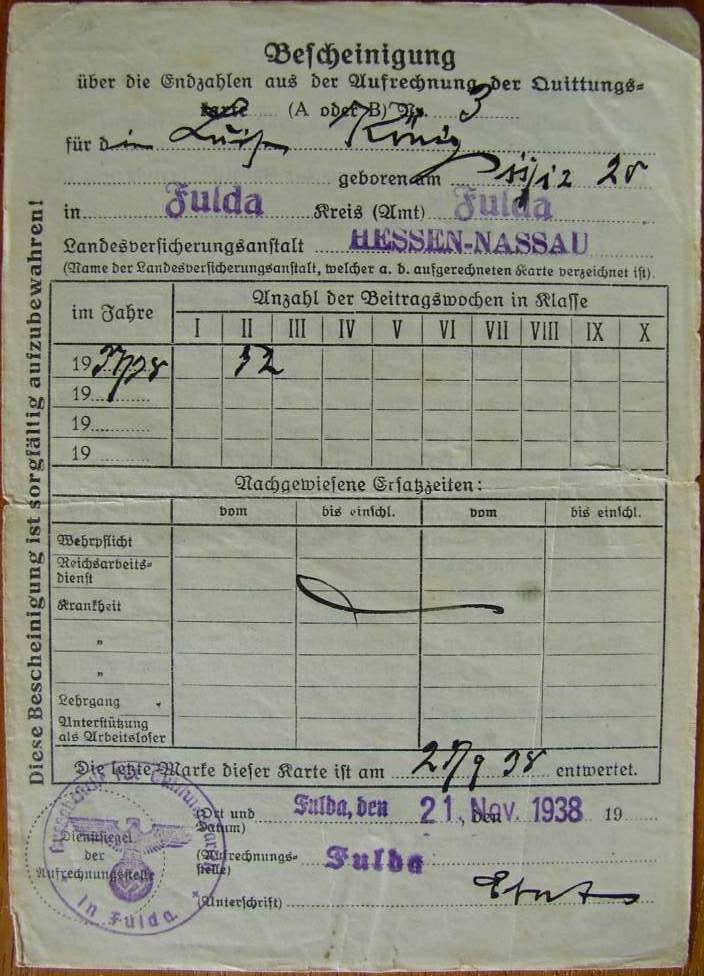 Bescheinigung
über die Endzahlen aus der Aufrechnung der Quittungs-
karte (A oder B) Nr. 3
für d König
geboren am
in Fulda Kreis (Amt) Fulda
Landesversicherungsanstalt HESSEN-NASSAU
(Name der Landesversicherungsanstalt, welcher a. d. aufgerechneten Karte verzeichnet ist).
Diese Bescheinigung ist sorgfältig aufzubewahren!
im Jahre
Anzahl der Beitragswochen in Klasse
I II III IV V VI VII VIII IX X
1937/38 52
19
19
19
Nachgewiesene Ersatzzeiten:
vom bis einschl. vom bis einschl.
Wehrpflicht
Reichsarbeits-
dienst
Krankheit
"
"
Lehrgang
Unterstützung
als Arbeitsloser
Die letzte Marke dieser Karte ist am 9 38 entwertet.
(Ort und
Datum) Fulda, den 21. Nov. 1938 den 19
(Aufrechnungs-
stelle) Fulda
(Unterschrift)
Dienstsiegel
der
Aufrechnungsstelle
in Fulda